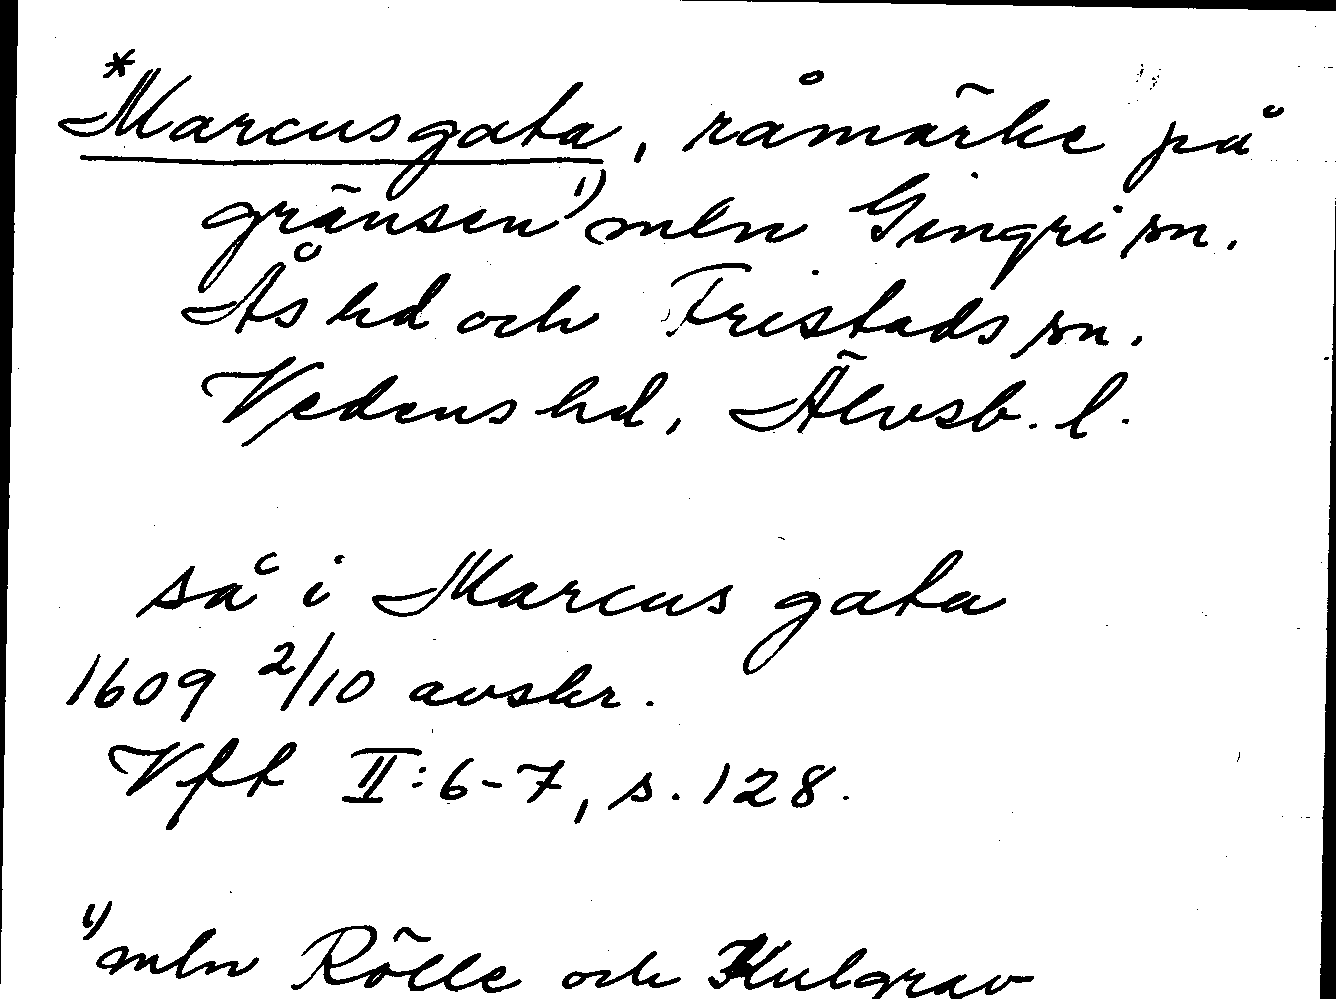 *Marcusgata, råmärke på
gränsen¹⁾ mln Gingri sn.
Ås hd och Fristads sn.
Vedens hd, Älvsb. l.
så i Marcus gata
1609 2/10 avskr.
Vft II:6-7, s. 128.
¹⁾ mln Rölle och Kulgrav